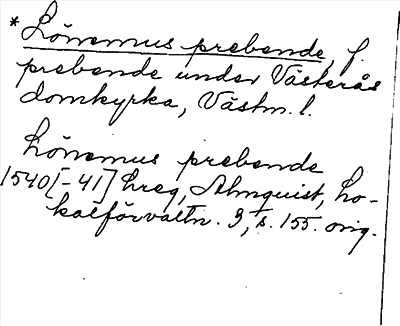 * Lönemus prebende, f.
prebende under Västerås
domkyrka, Västm. l.
Lönemus prebende
1540[-41] hreg, Almquist, Lo-
kalförvaltn. 3, s. 155. orig.